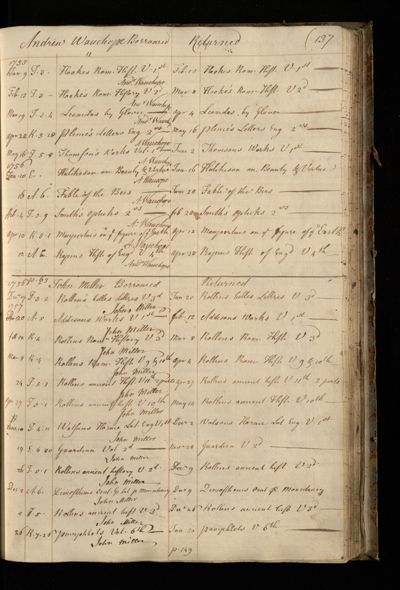 Andrew Wauchope Borrowed Returned (137
1755
Hookes Rom. Hist. V 1st Feb. 12 Hookes Rom. Hist. V 1st
And Wauchope
Feb. 12 Hooke's Rom. History V 2d Mar 8 Hooke's Rom. Hist. V 2d
And Wauchope
Leonidas by Glover Apr 4 Leonidas by Glover
And Wauch
Apr 22 K.5.28 Plinie's Letters Eng 2nd May 16 Plinie's Letters Eng 2nd
A Wauchope
May 16 Thomson's Works Vol. 1st June 2 Thomsons Works V 1st
A Wauchope
1756
Jan 10 Hutchison on Beauty & Virtue Jan 16 Hutchison on Beauty & Virtue
A Wauchope
16 A.6. Fable of the Bees Jan 20 Fable of the Bees
A Wauchope
Feb 4 Smith's Opticks 2nd Feb 20 Smith's Opticks 2nd
A Wauchope
Apr 10 K.2.1 Maupertuis on ye figure of ye Earth Apr 12 Maupertuis on ye figure of ye Earth
A Wauchope
12 A.6. Rapins Hist. of Eng V 4th Apr 20 Rapins Hist. of Engd V 4th
And Wauchope
1756 John Miller Borrowed Returned
Rollins belles Lettres V 3d Jan 20 Rollins belles Lettres V 3d
John Miller
1757
Jan 20 Addisons Works V 1st Feb. 12 Addisons Works V 1st
John Miller
Feb 12 K.4 Rollins Rom. History V 3 Mar 8 Rollins Rom. Hist. V 3
John Miller
Mar 8 K.4 Rollins Rom. Hist. V 9 & 10th Apr 4 Rollins Rom. Hist. V 9 & 10th
John Miller
24 Rollins ancient Hist. V 11th 2 parts Apr 27 Rollins ancient hist. V 11th 2 parts
John Miller
Apr 27 Rollins ancient hist. V 10th May 14 Rollins ancient Hist. V 10th
John Miller
Watsons Horace Lat Eng V 1st Dec 2 Watsons Horace Lat Eng. V 1st
John Miller
19 E.6.20 Guardian Vol. 2d Nov 20 Guardian V 2d
John Miller
26 Rollins ancient history V 2d Dec 9 Rollins ancient hist. V 2d
John Miller
Dec 2 A.6. Demosthenes Dec 9 Demosthenes
John Miller
9 Rollins ancient hist. V 3d Dec 26 Rollins ancient hist. V 3d
John Miller
26 K.7.26 Pamphlets Vol. 6th Jan 20 pamphlets V. 6th
John Miller
p. 149